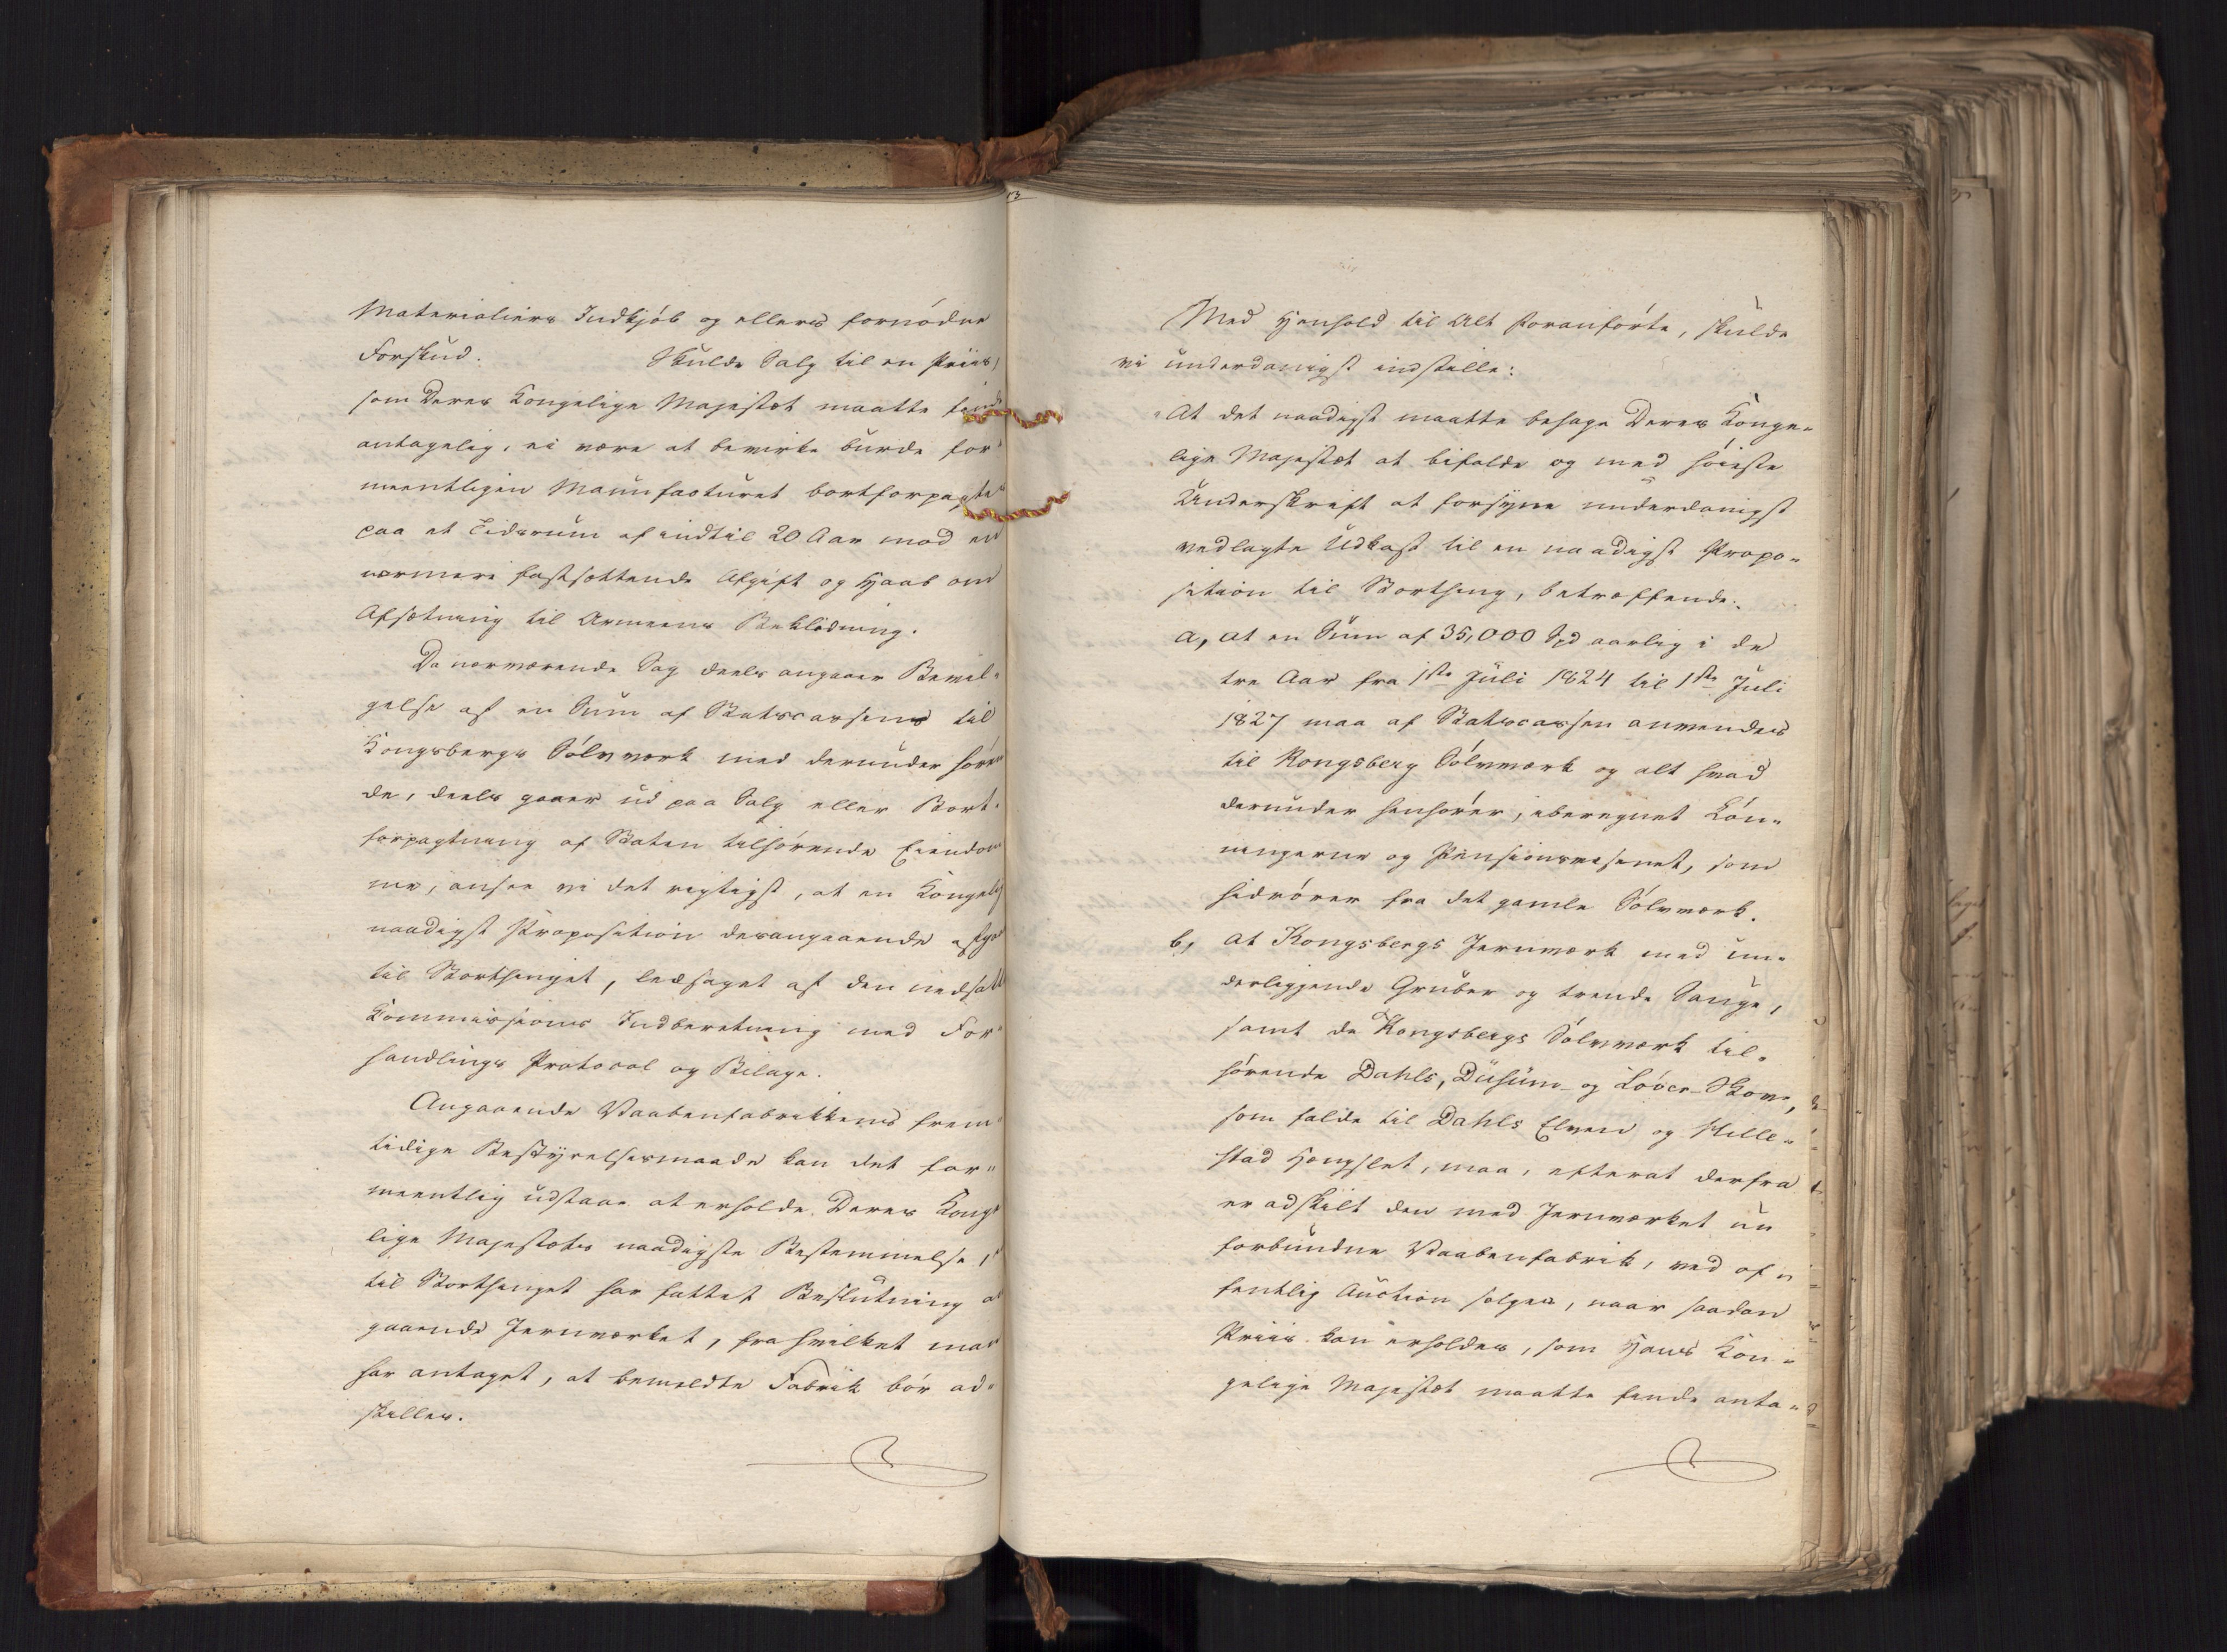 Materialiers Indkjøb og ellers fornødne
Forskud. Skulde Salg til en Priis,
som Deres Kongelige Majestæt maatte finde
antagelig, ei være at bevirke burde for-
meentligen Manufacturet bortforpagtes
paa et Tidsrum af indtil 20 Aar mod en
nærmere fastsættende Afgift og Haab om
Afsætning til Armeens Beklædning.
Da nærværende Sag deels angaaer Bevil-
gelse af en Sum af Statscassens til
Kongsbergs Sølvværk med derunder høren
de, deels gaaer ud paa Salg eller Bort-
forpagtning af Staten tilhørende Eiendom
me, ansee vi det rigtigst, at en Kongelig
naadigst Proposition desangaaende afgaaer
til Storthinget, ledsaget af den nedsatte
Kommissions Indberetning med For-
handlings Protocol og Bilage.
Angaaende Vaabenfabrikkens frem-
tidige Bestyrelsesmaade kan det for-
meentlig udstaae at erholde Deres Konge
lige Majestæts naadigste Bestemmelse,
til Storthinget har fattet Beslutning an
gaaende Jernværket, fra hvilket man
har antaget, at bemeldte Fabrik bør ad-
skilles.
Med Henhold til Alt Foranførte, skulde
vi underdanigst indstille:
"At det naadigst maatte behage Deres Konge-
lige Majestæt at bifalde og med høieste
Underskrift at forsyne underdanigst
vedlagte Udkast til en naadigst Propo-
sition til Storthing, betræffende:
a, at en Sum af 35,000 Spd aarlig i de
tre Aar fra 1ste Juli 1824 til 1ste Juli
1827 maa af Statscassen anvendes
til Kongsberg Sølvværk og alt hvad
derunder henhører, iberegnet Løn-
ningerne og Pensionsvæsenet, som
hidrører fra det gamle Sølvværk.
b, at Kongsbergs Jernværk med un-
derliggende Gruber og trende Sauge,
samt de Kongsbergs Sølvværk til-
hørende Dahls, Düsüm- og Lôver-Skove,
som falde til Dahls Elven og Hille-
stad Hengslet, maa, efterat derfra
er adskilt den med Jernværket nu
forbundne Vaabenfabrik, ved of-
fentlig Auction sælges, naar saadan
Priis kan erholdes, som Hans Kon-
gelige Majestæt maatte finde anta-